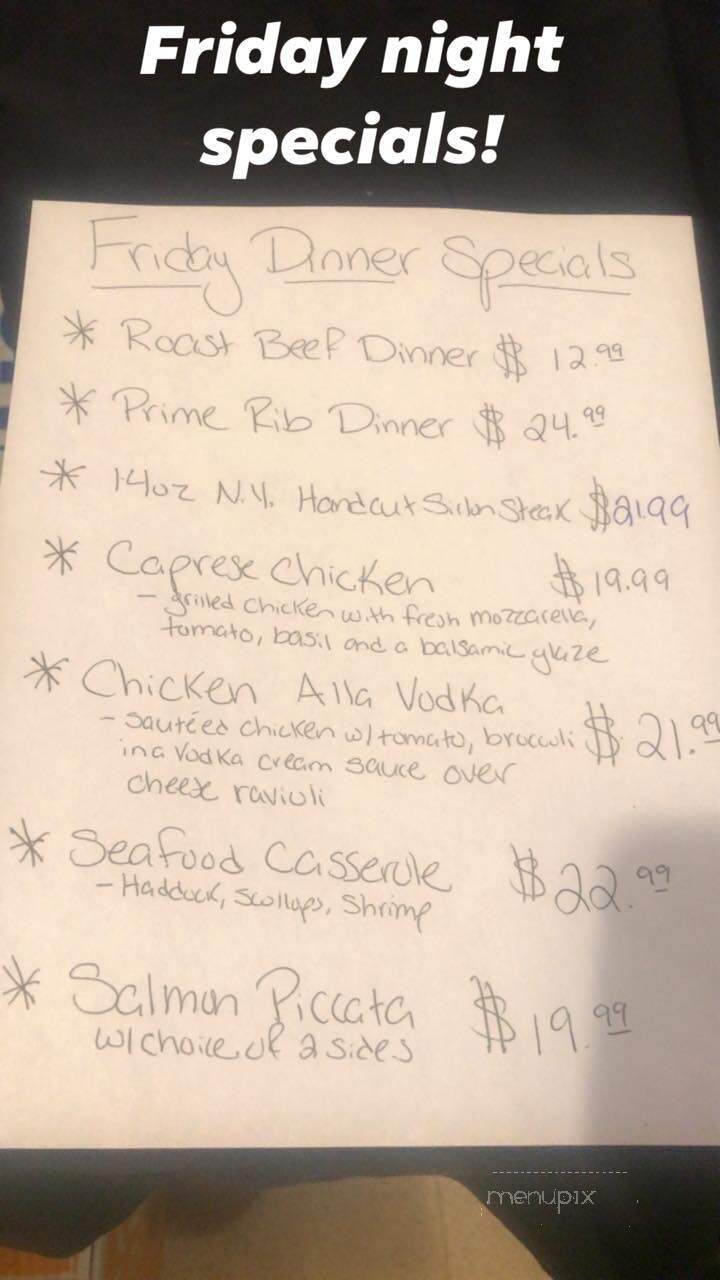 Friday night
specials!
Friday Dinner Specials
* Roast Beef Dinner $ 12.99
* Prime Rib Dinner $ 24.99
* 14oz N.Y. Handcut Sirlon Steak $21.99
* Caprese Chicken $19.99
- grilled chicken with fresh mozzarella,
tomato, basil and a balsamic glaze
* Chicken Alla Vodka
- sautéed chicken w/tomato, broccoli $21.99
in a Vodka cream sauce over
cheese ravioli
* Seafood Casserole $22.99
- Haddock, Scollops, Shrimp
* Salmon Piccata $19.99
w/choice of 2 sides
menupix